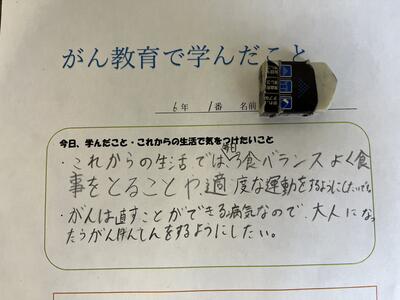 がん教育で学んだこと
6年 1番 名前
今日、学んだこと・これからの生活で気をつけたいこと
・これからの生活では、毎日3食バランスよく食
事をとることや適度な運動をするようにしたいです。
・がんは直すことができる病気なので、大人になっ
たらがんけんしんをするようにしたい。